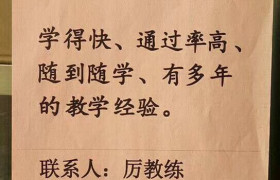 学得快、通过率高、
随到随学、有多年
的教学经验。
联系人：厉教练